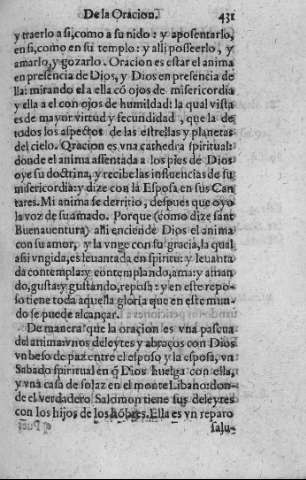 De la Oracion. 431
y traerlo a si, como a su nido: y aposentarlo,
en si, como en su templo: y alli posseerlo, y
amarlo, y gozarlo. Oracion es estar el anima
en presencia de Dios, y Dios en presencia de
lla: mirando el a ella cõ ojos de misericordia
y ella a el con ojos de humildad: la qual vista
es de mayor virtud y fecundidad, que la de
todos los aspectos de las estrellas y planetas
del cielo. Oracion es vna cathedra spiritual:
donde el anima assentada a los pies de Dios
oye su doctrina, y recibe las influencias de su
misericordia: y dize con la Esposa en sus Can
tares. Mi anima se derritio, despues que oyo
la voz de su amado. Porque (como dize sant
Buenauentura) alli enciende Dios el anima
con su amor, y la vnge con su gracia, la qual
assi vngida, es leuantada en spiritu: y leuanta
da contempla: y contemplando, ama: y aman
do, gusta: y gustando, reposa: y en este repo-
so tiene toda aquella gloria que en este mun-
do se puede alcançar.
De manera que la oracion es vna pascua
del anima: vnos deleytes y abraços con Dios
vn beso de paz entre el esposo y la esposa, vn
Sabado spiritual en q̃ Dios huelga con ella,
y vna casa de solaz en el monte Libano: don-
de el verdadero Salomon tiene sus deleytes
con los hijos de los hõbres. Ella es vn reparo
salu-